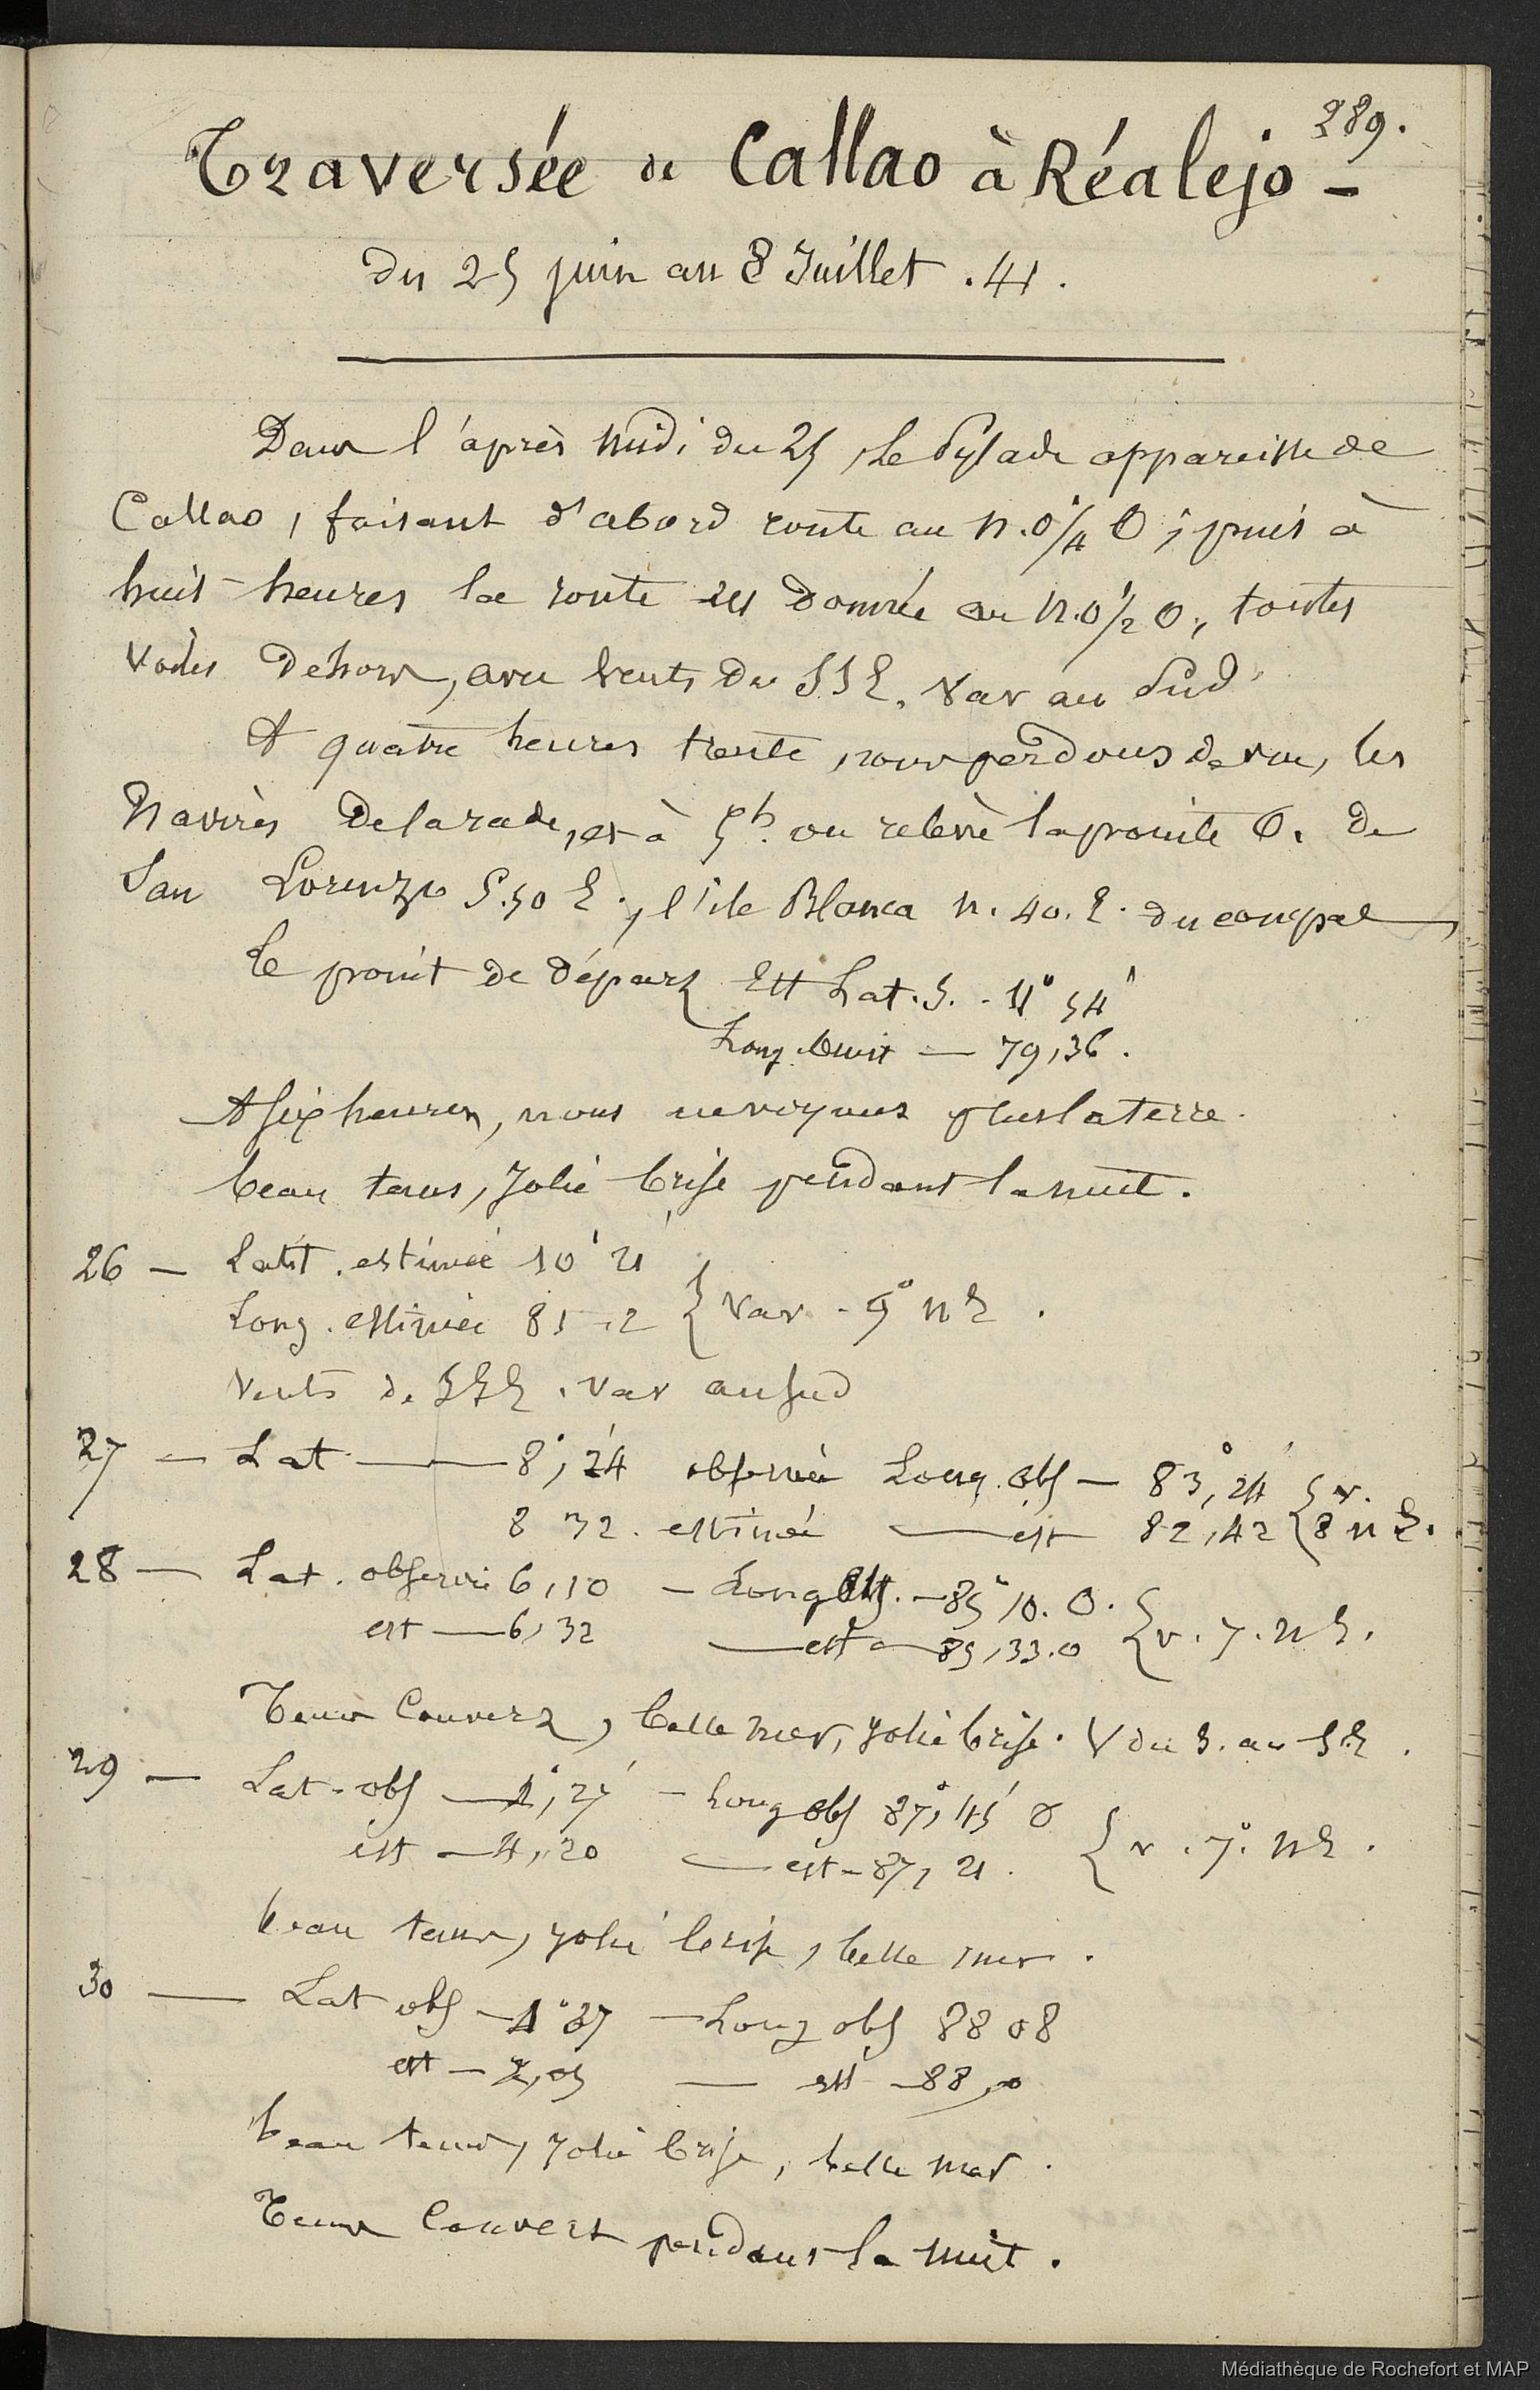 289.
Traversée de Callao à Réalejo -
du 25 juin au 8 Juillet . 41 .
Dans l'après midi du 25, le Pylade appareille de
Callao, faisant d'abord route au N.O 1/4 O ; puis à
huit heures la route est donnée au N.O 1/2 O, toutes
voiles dehors, avec vents du SSE. var au Sud.
A quatre heures trente, nous perdons de vue, les
Navires de la rade, et à 5h. on relève la pointe O. de
San Lorenzo S.50 E., l'ile Blanca N. 40. E. du compas
Le point de départ Est Lat. S. - 11° 54'
Long. Ouest — 79,36.
A six heures, nous ne voyons plus la terre.
beau tems, Jolie brise pendant la nuit.
26 — Latit. estimée 10° 21'
Long. estimée 81 , 2 } var - 9° NE .
Vents de SSE . var au Sud
27 — Lat — 8°, 24' observée Long. obs — 83°, 24' } v.
8 32. estimée — est 82,42 } 8 NE.
28 — Lat. observée 6,10 — Long obs. — 85° 10. O.
est — 6,32 — est — 85,33.0 } v. 7. NE.
Tems Couvert, belle mer, Jolie brise. V du S. au SE .
29 — Lat - obs — 4°, 27' — Long obs 87°, 45' O
est — 4, 20 — est — 87, 21 . } v . 7° . NE .
beau tems, jolie brise, belle mer .
30 — Lat obs — 1° 87 — Long obs 88 08
est — 2,05 — est — 88,0
beau tems, Jolie brise, belle mer .
Tems Couvert pendant la nuit .
Médiathèque de Rochefort et MAP